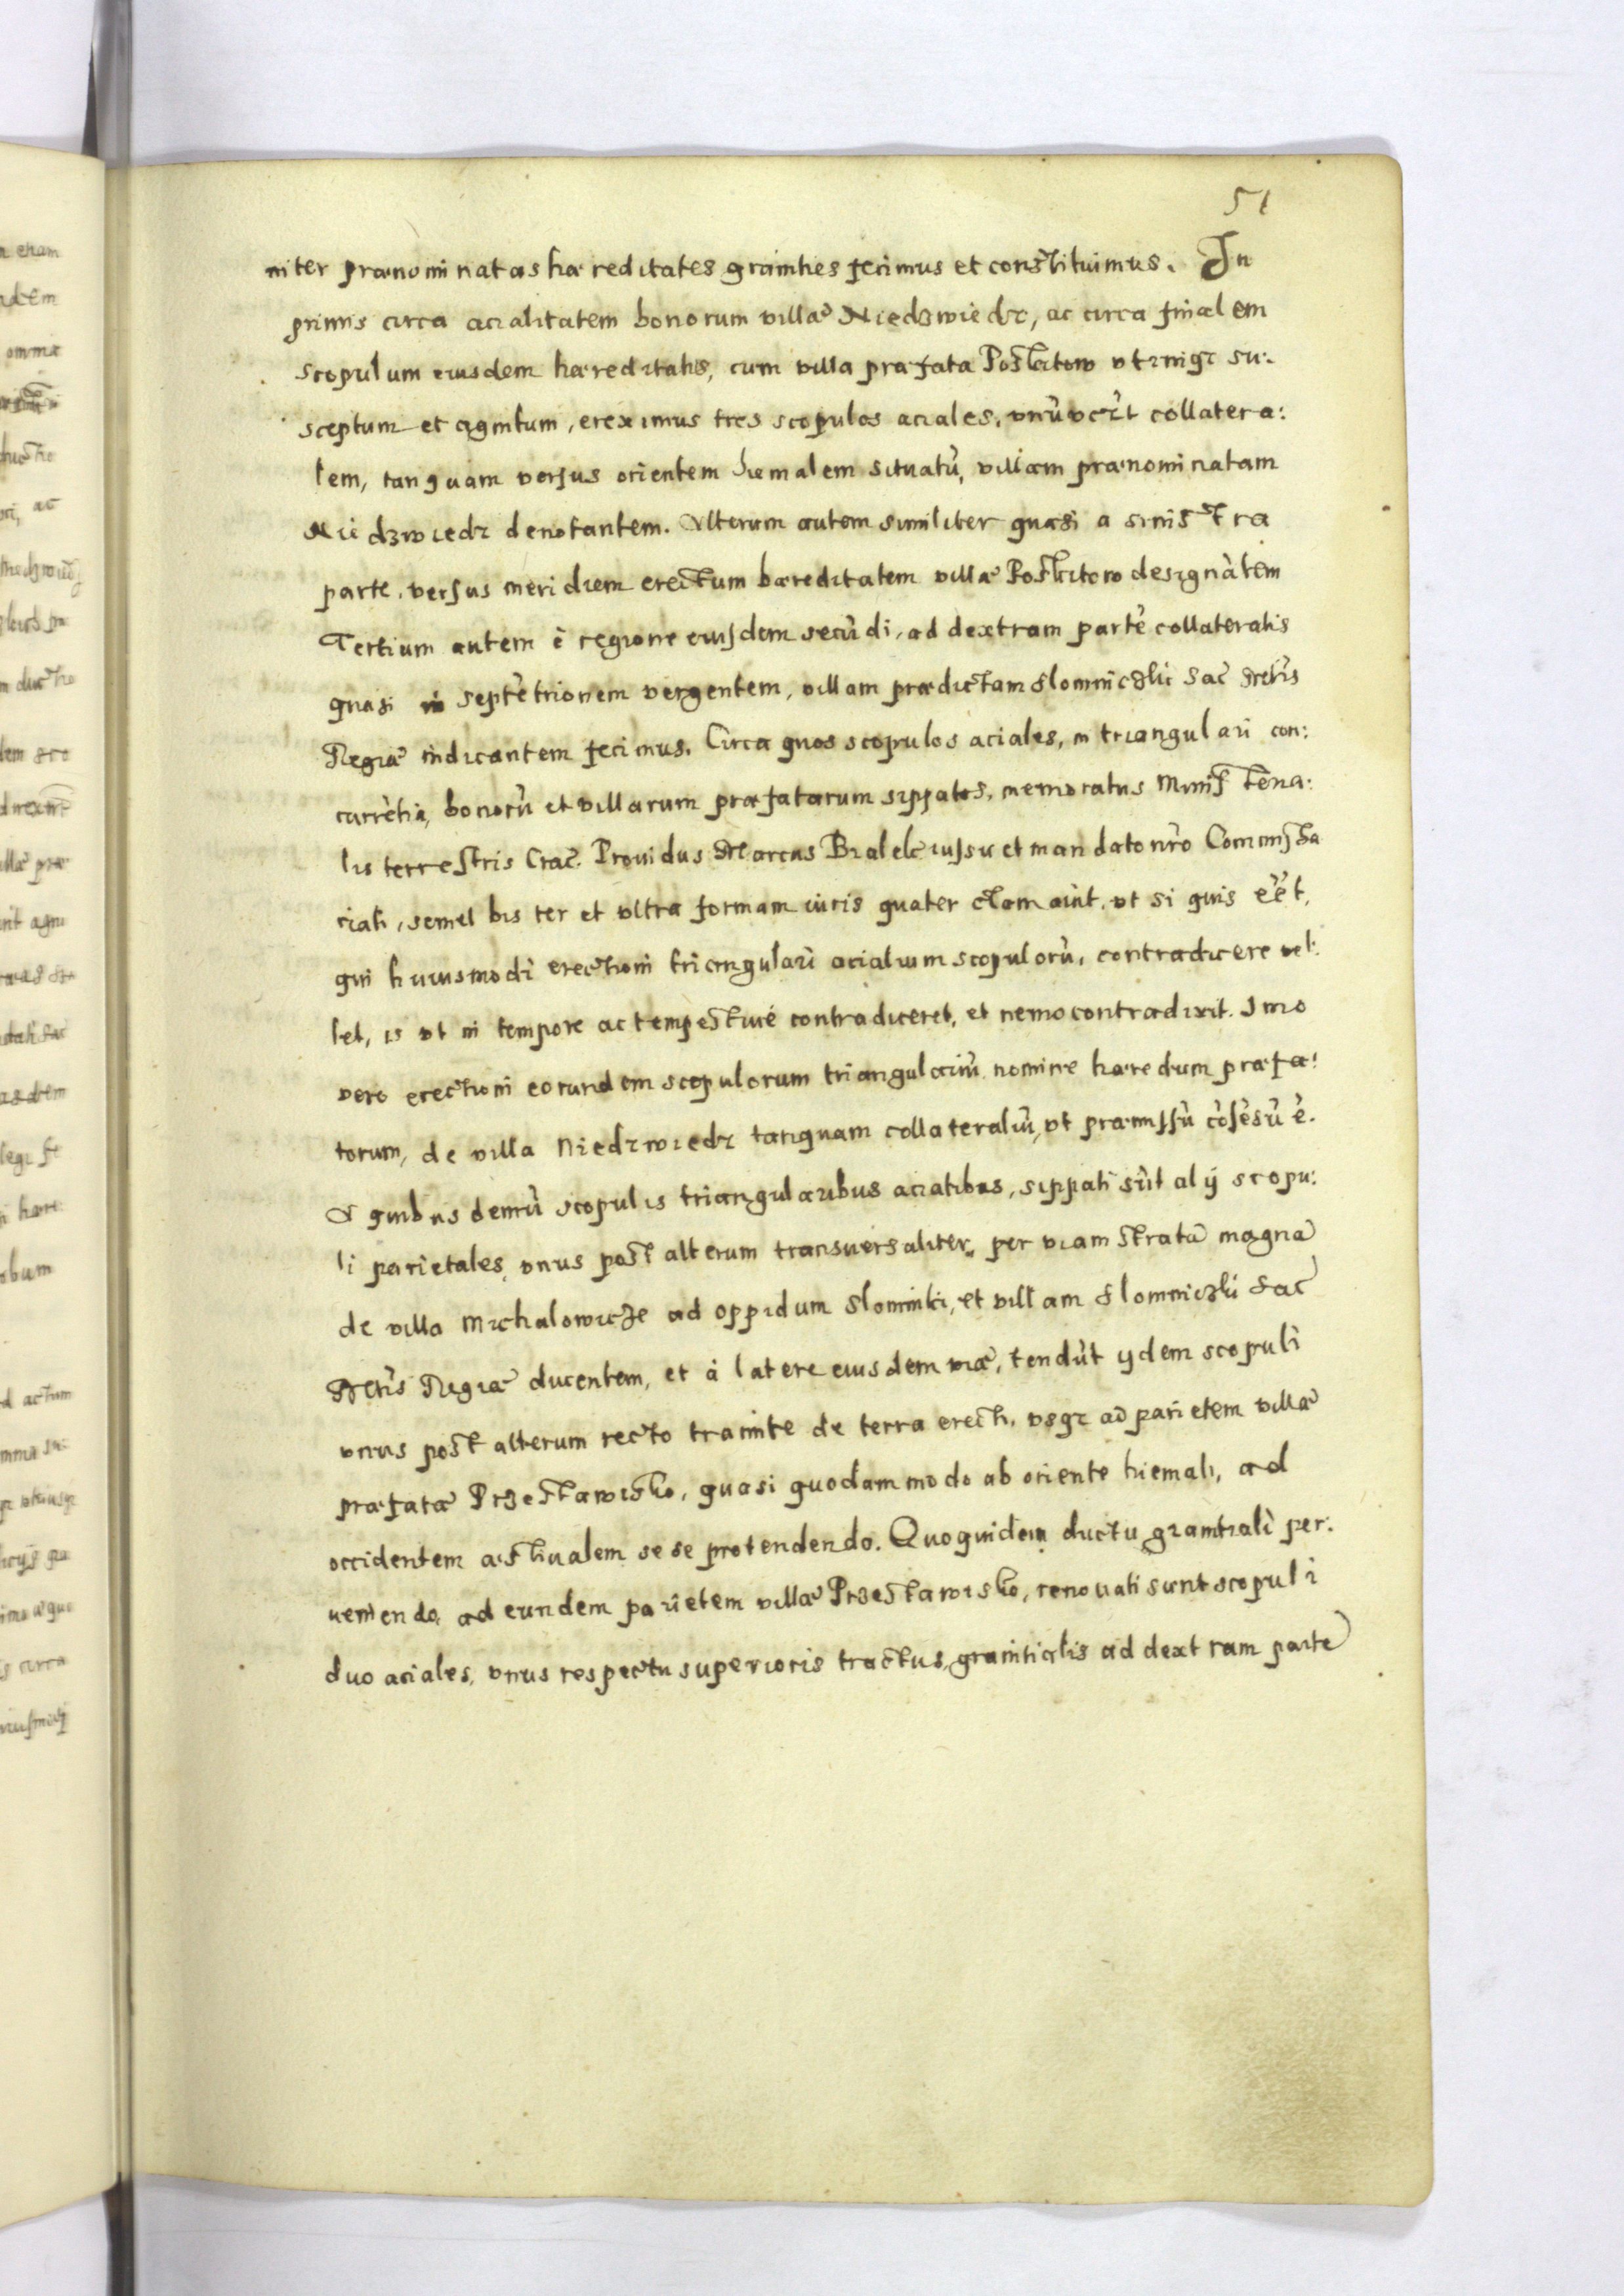 51
inter prænominatas hæreditates granities fecimus et constituimus. In
primis circa acialitatem bonorum villæ Niedzwiedz, ac circa finalem
scopulum eiusdem hæreditatis, cum villa præfata Poskitow utrinqz su:
sceptum et agnitum, ereximus tres scopulos aciales, unũ vcz̃t collatera:
lem, tanquam versus orientem hiemalem situatũ, villam prænominatam
Niedzwiedz denotantem. Alterum autem similiter quasi a sinistra
parte, versus meridiem erectum hæreditatem villæ Poskitow designãtem
Tertium autem è regione eiusdem secũdi, ad dextram partẽ collateralis
quasi in septẽtrionem vergentem, villam prædictam Slomniczki Sac̃ Mtis̃
Regiæ indicantem fecimus. Circa quos scopulos aciales, in triangulari con:
currẽtia, bonorũ et villarum præfatarum sippatos, memoratus Minis̃teria:
lis terrestris Crac̃. Providus Marcus Bialek iussu et mandato nr̃o Commissa
riali, semel bis ter et ultra formam iuris quater clamavit, ut si quis eẽt,
qui huiusmodi erectioni triangulari acialium scopulorũ, contradicere vel:
let, is ut in tempore ac tempestivé contradiceret, et nemo contradixit. Imo
vero erectioni eorundem scopulorum triangulariũ nomine hæredum præfa:
torum, de villa Niedzwiedz tanquam collateraliũ, ut præmissũ cõsẽsũ ẽ.
A quibus demũ scopulis triangularibus acialibus, sippati sũt alÿ scopu:
li parietales, unus post alterum transversaliter, per viam stratã magnã
de villa Michalowicze ad oppidum Slomniki, et villam Slomniczki Sac̃
Mtis̃ Regiæ ducentem, et à latere eiusdem viæ, tendũt ÿdem scopuli
unus post alterum recto tramite de terra erecti, usqz ad parietem villæ
præfatæ Przestawisko, quasi quodammodo ab oriente hiemali, ad
occidentem æstivalem sese protendendo. Quoquidem ductu granitiali per:
veniendo, ad eundem parietem villæ Przestawisko, renovati sunt scopuli
duo aciales, unus respectu superioris tractus granitialis ad dextram partẽ